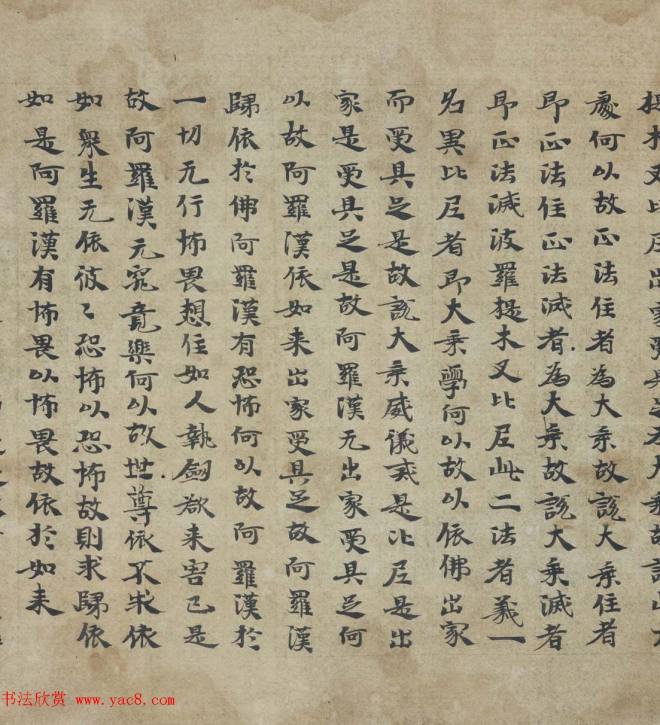 提木叉比尼出家受具足大乘故說此六
處何以故正法住者為大乘故說大乘住者
即正法住正法滅者為大乘故說大乘滅者
即正法滅波羅提木叉比尼此二法者義一
名異比尼者即大乘學何以故以依佛出家
而受具足是故說大乘威儀戒是比尼是出
家是受具足是故阿羅漢无出家受具足何
以故阿羅漢依如来出家受具足故阿羅漢
歸依於佛阿羅漢有恐怖何以故阿羅漢於
一切无行怖畏想住如人執劒欲来害己是
故阿羅漢无究竟樂何以故世尊依不求依
如衆生无依彼〻恐怖以恐怖故則求歸依
如是阿羅漢有怖畏以怖畏故依於如来
书法欣赏 www.yac8.com